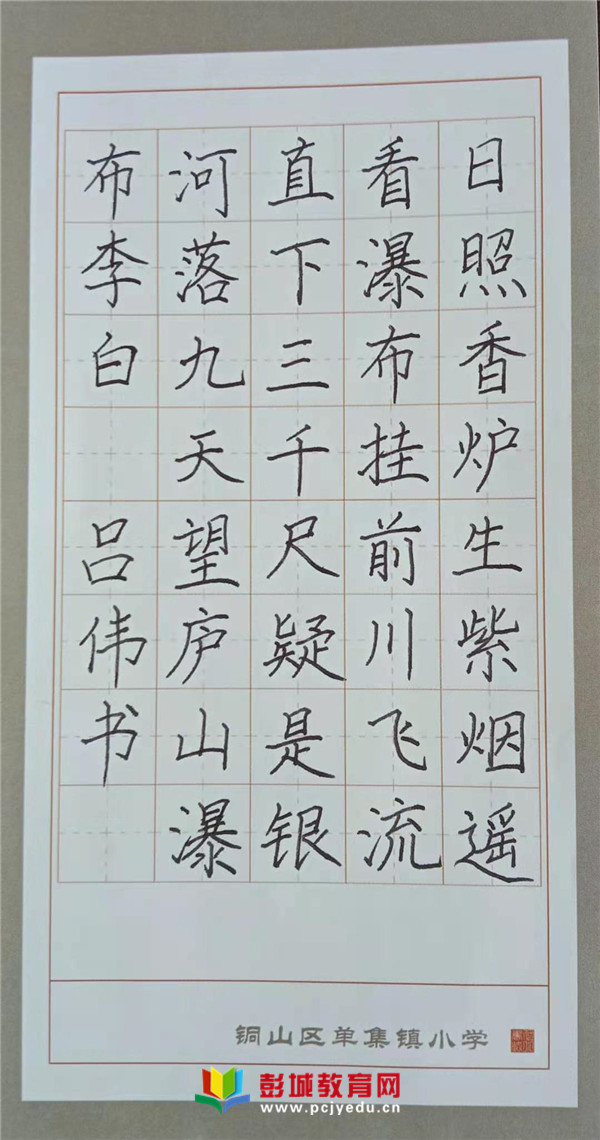 日照香炉生紫烟遥
看瀑布挂前川飞流
直下三千尺疑是银
河落九天 望庐山瀑
布李白 吕伟书
铜山区单集镇小学
彭城教育网
www.pcjyedu.cn